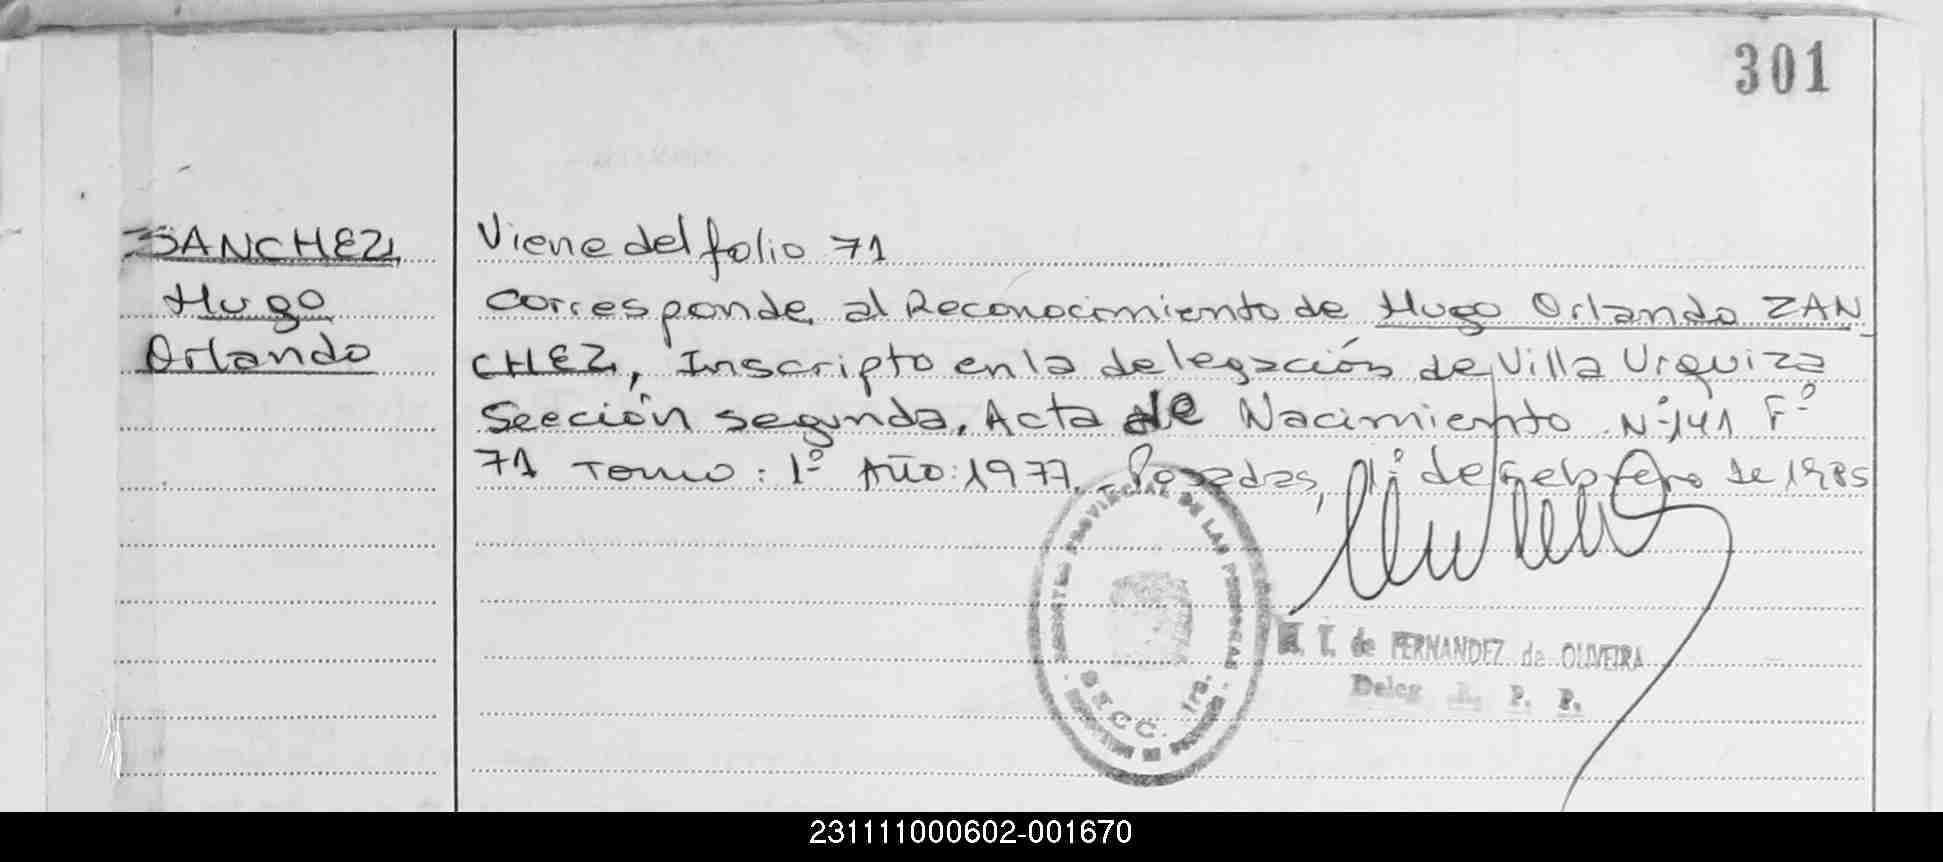 301
SANCHEZ,
Hugo
Orlando
Viene del folio 71
Corresponde al Reconocimiento de Hugo Orlando ZAN
CHEZ, Inscripto en la delegación de Villa Urquiza
Sección segunda, Acta de Nacimiento Nº 141 Fº
71 Tomo: 1º Año: 1977. Posadas, 1º de Febrero de 1985
PROVINCIAL DE LAS PERSONAS
SECC. 1ra.
T. de FERNANDEZ de OLIVEIRA
Deleg. R. P. P.
231111000602-001670